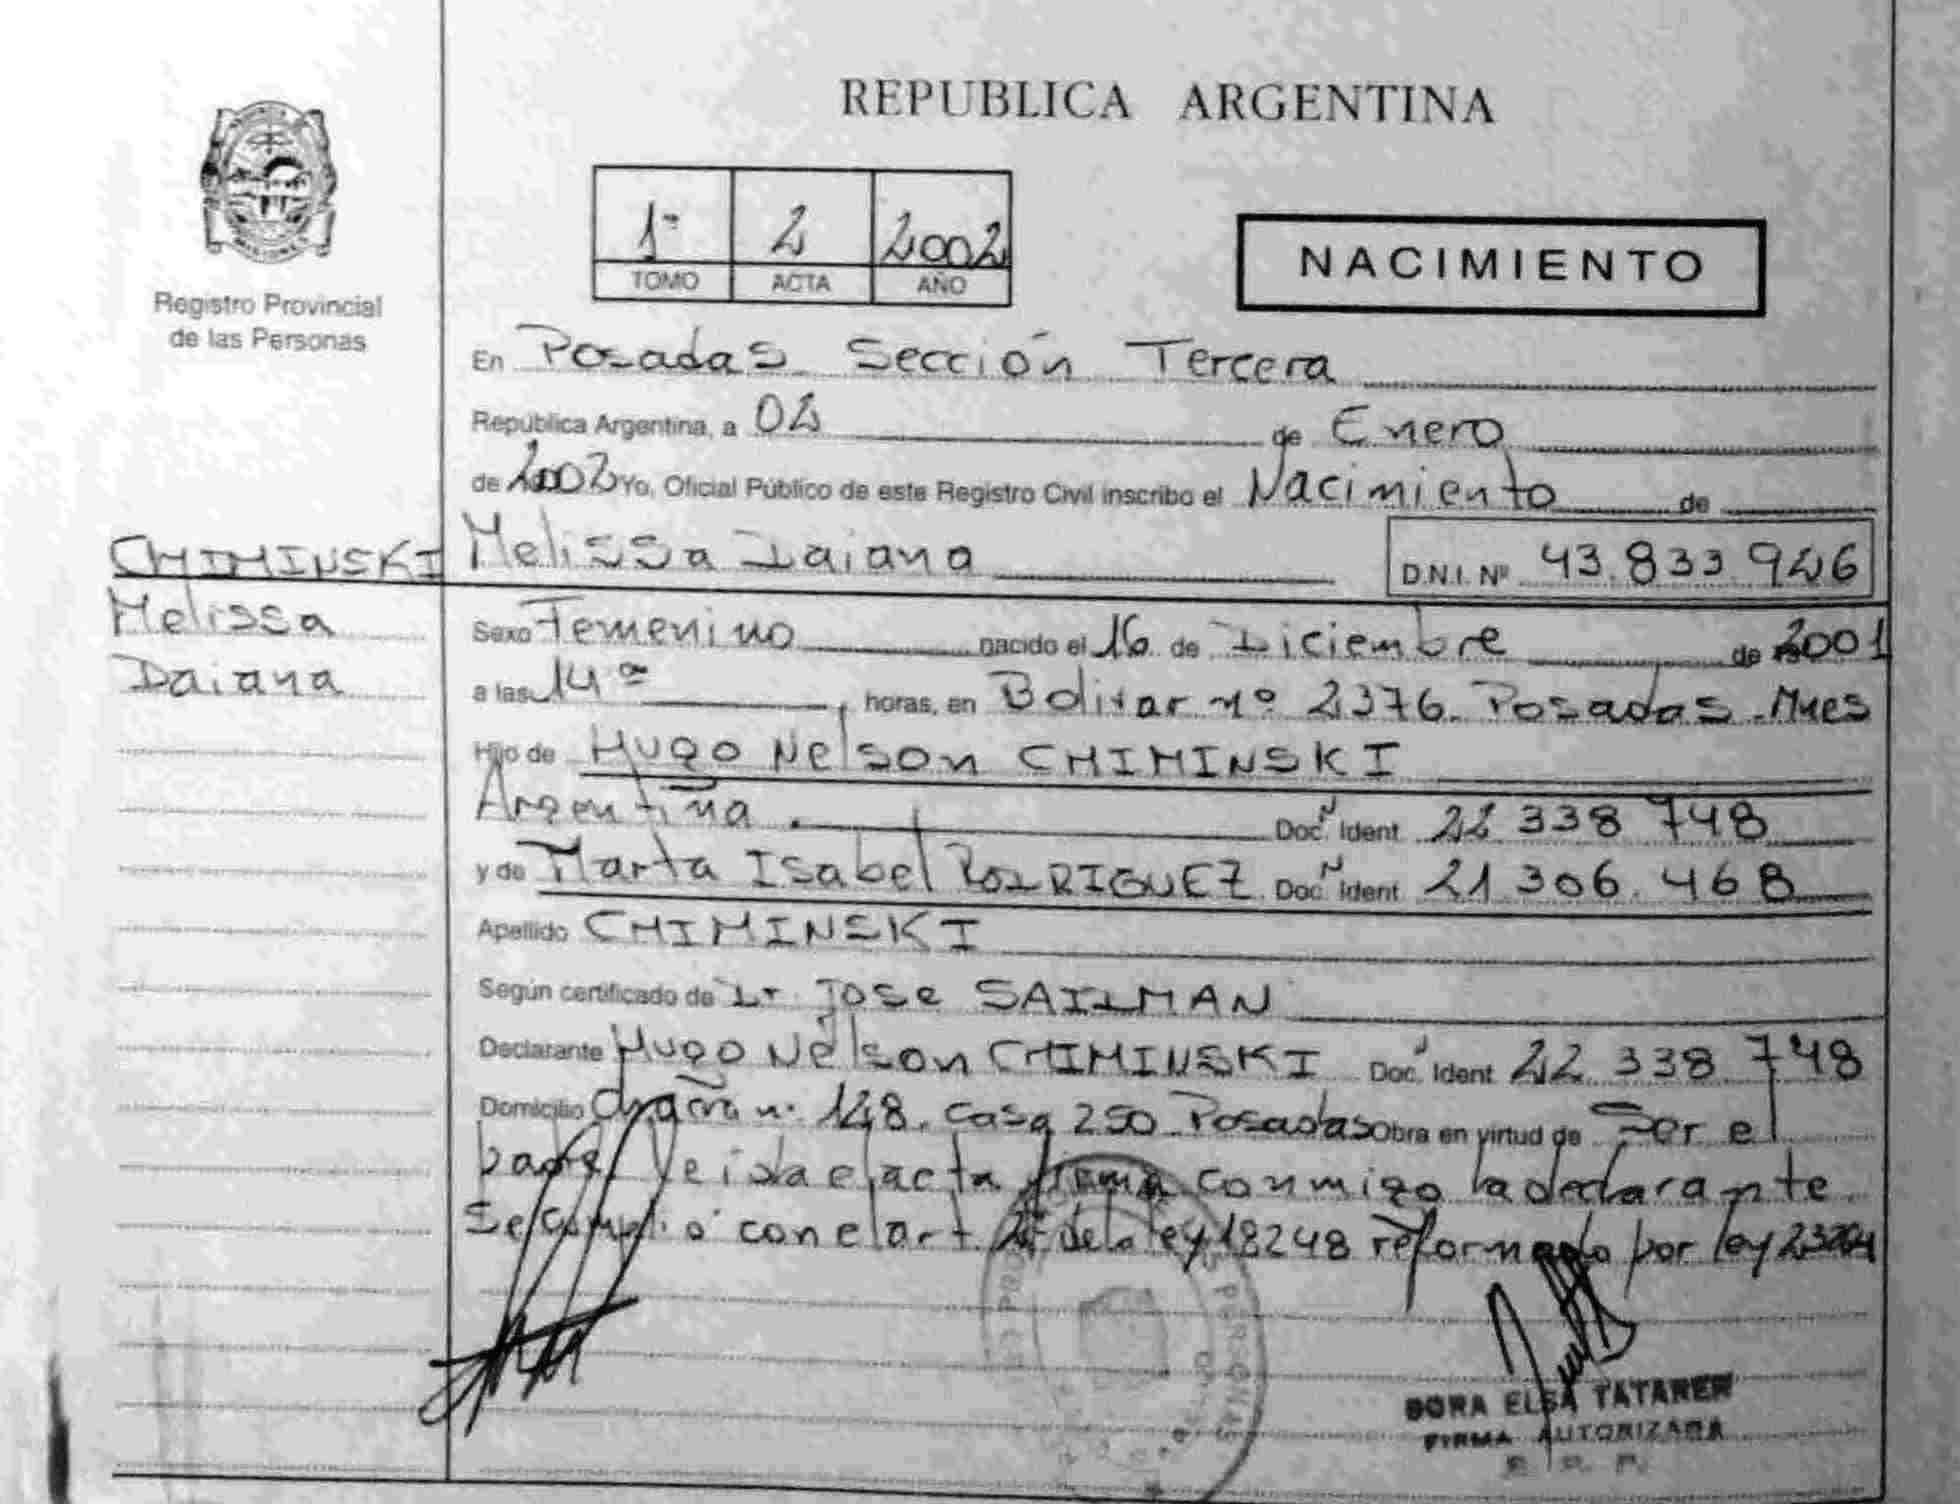 REPUBLICA ARGENTINA
1ª 2 2002
TOMO ACTA AÑO
NACIMIENTO
Registro Provincial
de las Personas
En Posadas Sección Tercera
República Argentina, a 02 de Enero
de 2002 Yo, Oficial Público de este Registro Civil inscribo el Nacimiento de
CHIMINSKI Melissa Daiana D.N.I. Nº 43.833.926
Melissa
Daiana
Sexo Femenino nacido el 16 de Diciembre de 2001
a las 14 horas, en Bolivar nº 2376. Posadas - Mnes
Hijo de Hugo Nelson CHIMINSKI
Argentina. Doc. Ident 22 338 748
y de Marta Isabel RODRIGUEZ Doc. Ident 21 306.468
Apellido CHIMINSKI
Según certificado de Dr. Jose SAIDMAN
Declarante Hugo Nelson CHIMINSKI Doc. Ident 22 338 748
Domicilio 148. casa 250 Posadas Obra en virtud de Ser el
padre. Leida el acta firma conmigo la declarante
Se cumplió con el art. de la ley 18248 reformado por ley
ELSA TATAREN
FIRMA AUTORIZADA